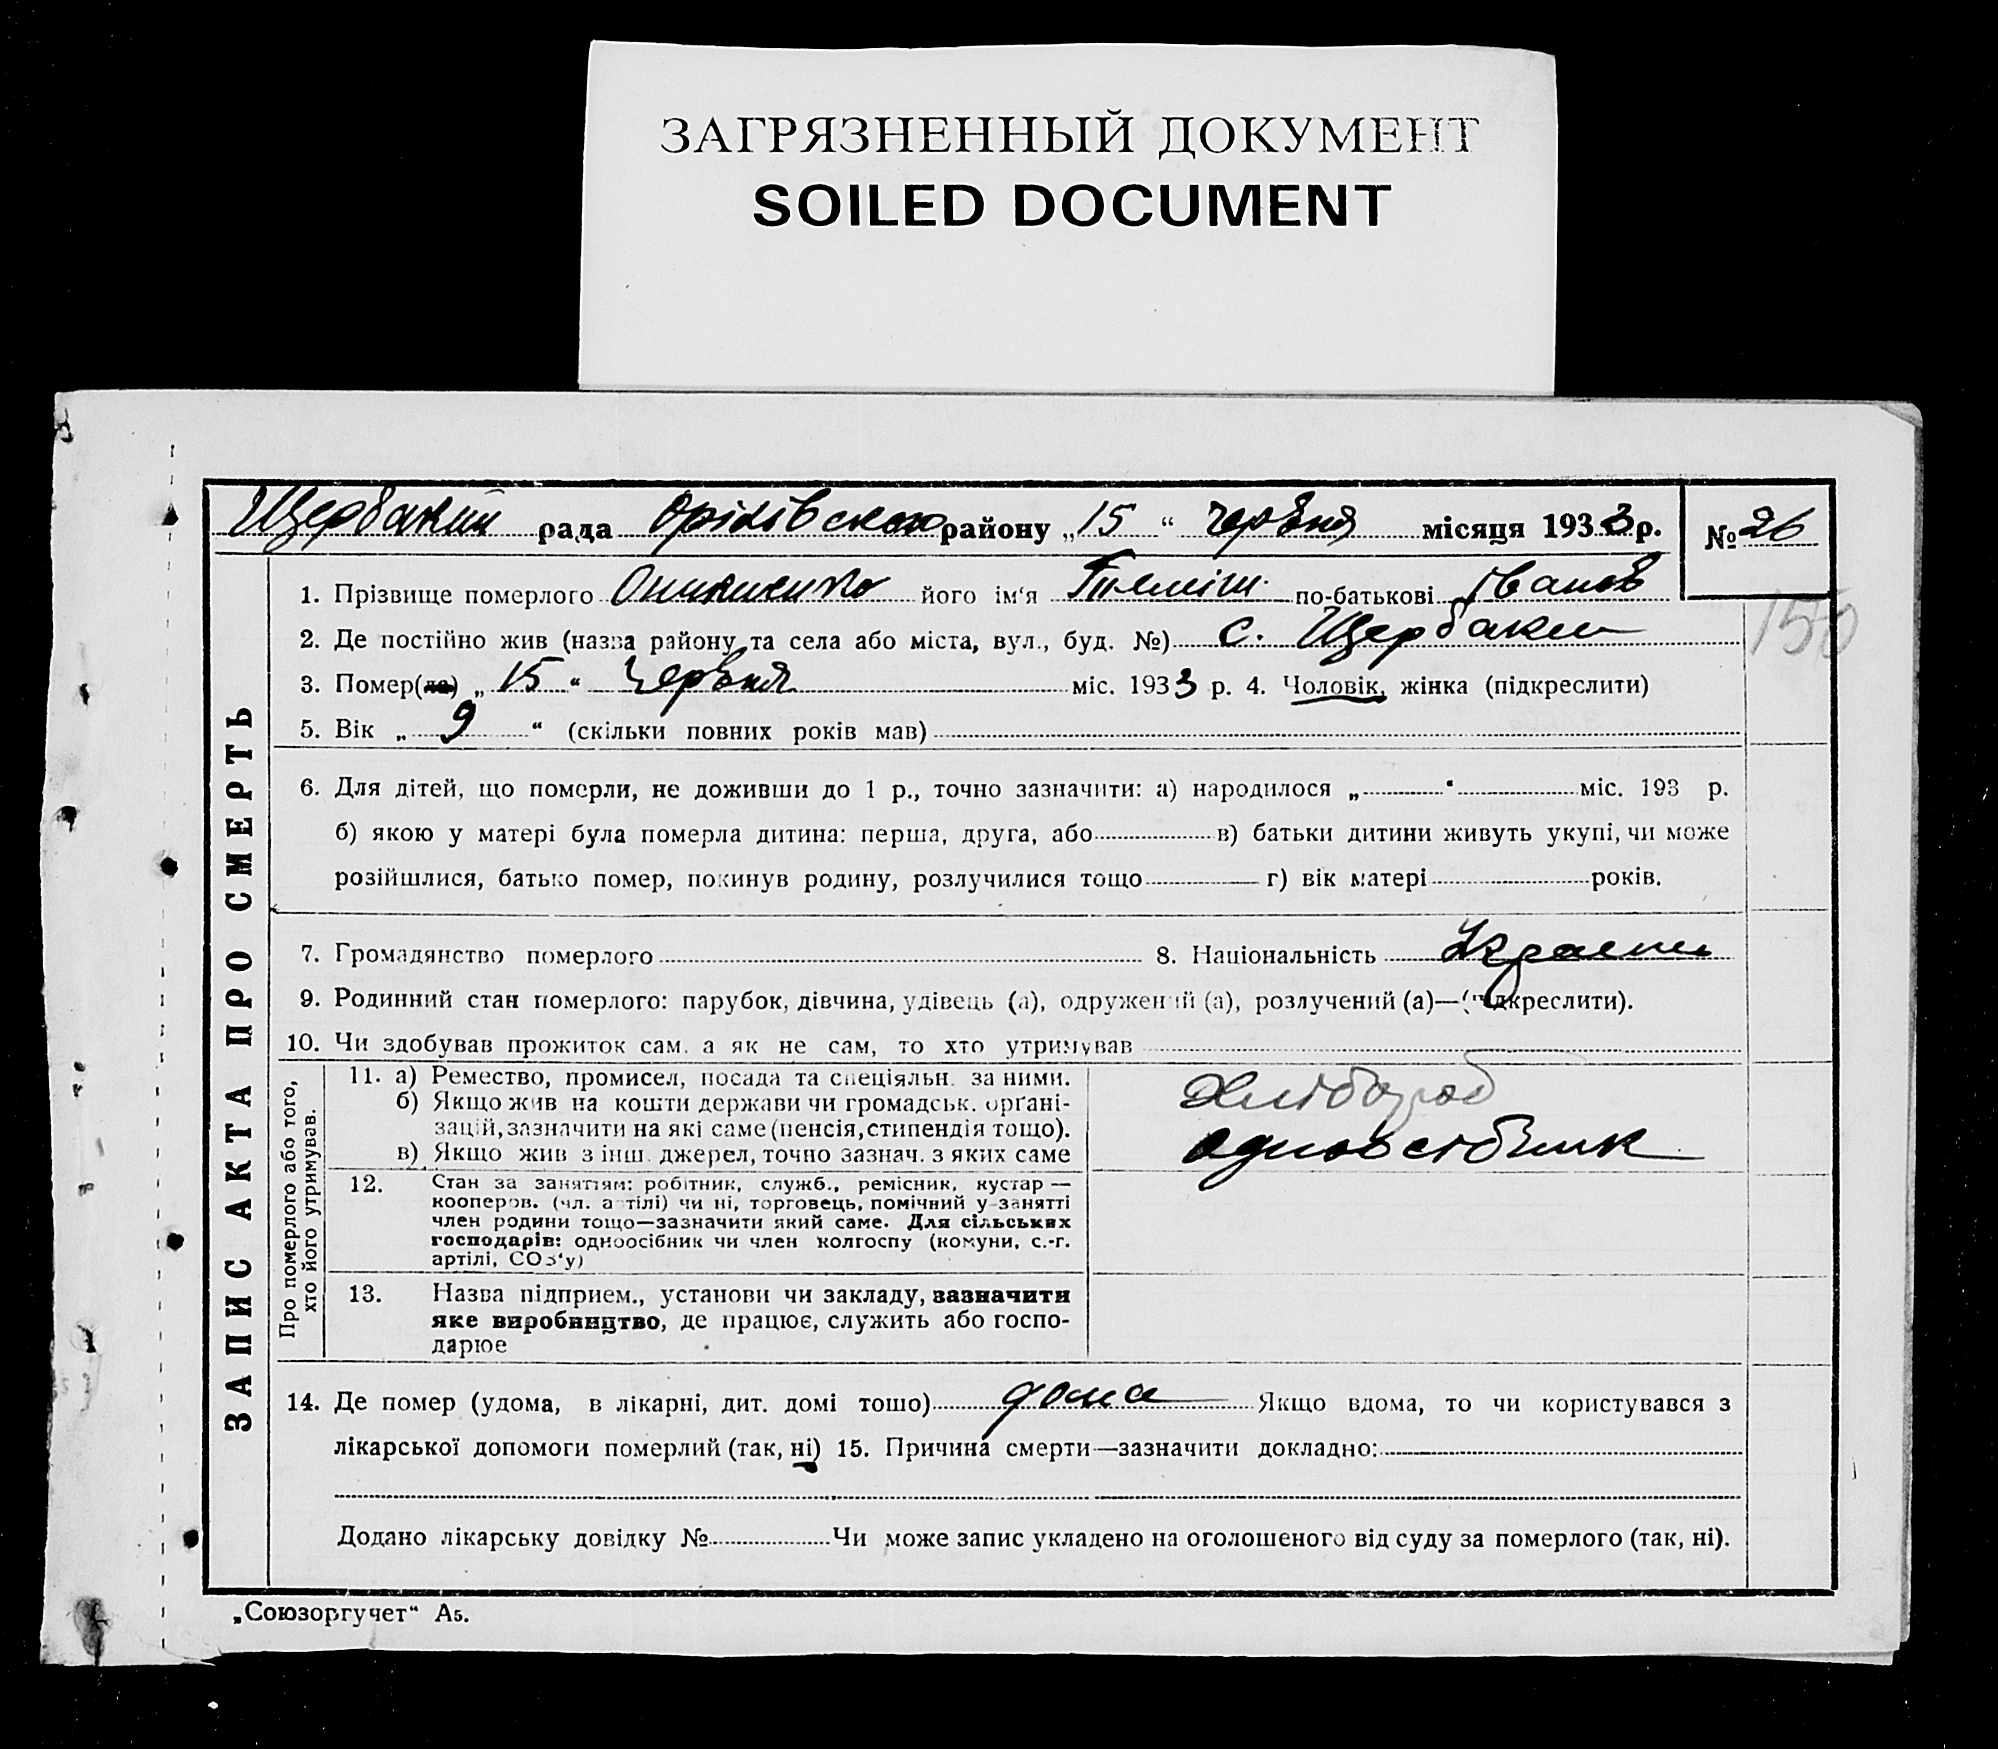 ЗАГРЯЗНЕННЫЙ ДОКУМЕНТ
SOILED DOCUMENT
рада Оріхівського району „15“ червня місяця 1933 р. № 26
150
ЗАПИС АКТА ПРО СМЕРТЬ
1. Прізвище померлого його ім'я по-батькові Іванов
2. Де постійно жив (назва району та села або міста, вул., буд. №) с. Щербаки
3. Помер(ла) „15“ червня міс. 1933 р. 4. Чоловік, жінка (підкреслити)
5. Вік „9“ (скільки повних років мав)
6. Для дітей, що померли, не доживши до 1 р., точно зазначити: а) народилося „ “ міс. 193 р.
б) якою у матері була померла дитина: перша, друга, або в) батьки дитини живуть укупі, чи може
розійшлися, батько помер, покинув родину, розлучилися тощо г) вік матері років.
7. Громадянство померлого 8. Національність
9. Родинний стан померлого: парубок, дівчина, удівець (а), одружений (а), розлучений (а)—(підкреслити).
10. Чи здобував прожиток сам, а як не сам, то хто утримував
Про померлого або того,
хто його утримував.
11. а) Ремество, промисел, посада та спеціяльн. за ними.
б) Якщо жив на кошти держави чи громадськ. орґані-
зацій, зазначити на які саме (пенсія, стипендія тощо).
в) Якщо жив з інш. джерел, точно зазнач. з яких саме
Хлібороб
одноосібник
12. Стан за заняттям: робітник, служб., ремісник, кустар —
кооперов. (чл. артілі) чи ні, торговець, помічний у занятті
член родини тощо—зазначити який саме. Для сільських
господарів: одноосібник чи член колгоспу (комуни, с.-г.
артілі, СОЗ'у)
13. Назва підприєм., установи чи закладу, зазначити
яке виробництво, де працює, служить або госпо-
дарює
14. Де помер (удома, в лікарні, дит. домі тощо) дома Якщо вдома, то чи користувався з
лікарської допомоги померлий (так, ні) 15. Причина смерти—зазначити докладно:
Додано лікарську довідку № Чи може запис укладено на оголошеного від суду за померлого (так, ні).
„Союзоргучет“ А5.